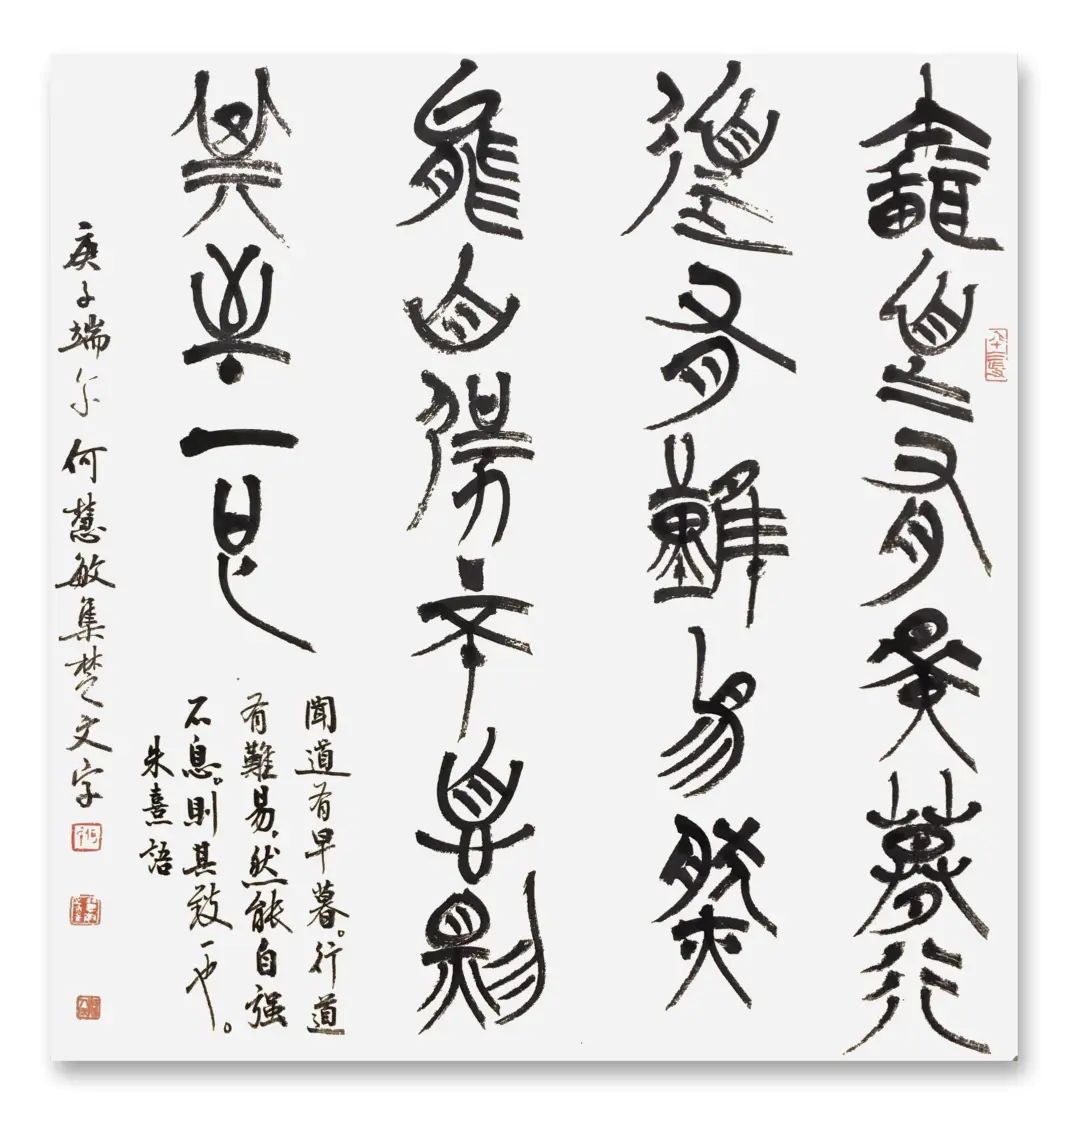 聞道有早暮行
道有難易然
能自強不息則
其至一也
聞道有早暮。行道
有難易，然能自强
不息。則其致一也。
朱熹語
庚子端尔 何慧敏集楚文字